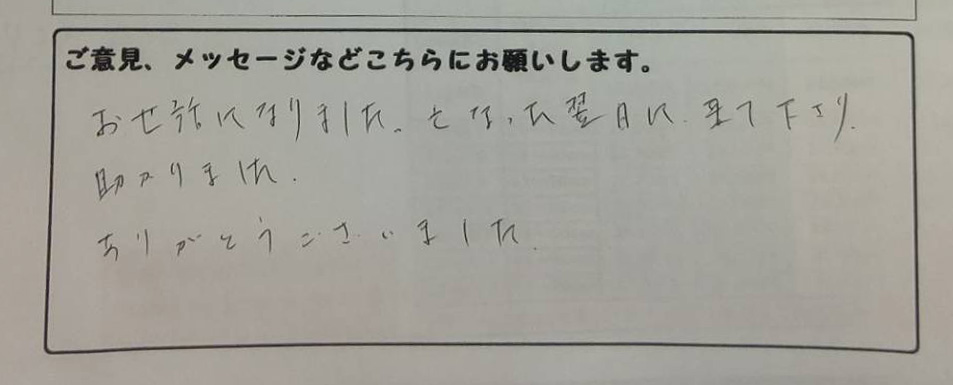 ご意見、メッセージなどこちらにお願いします。
おせ話になりました。となった翌日に来て下さり
助かりました。
ありがとうございました。